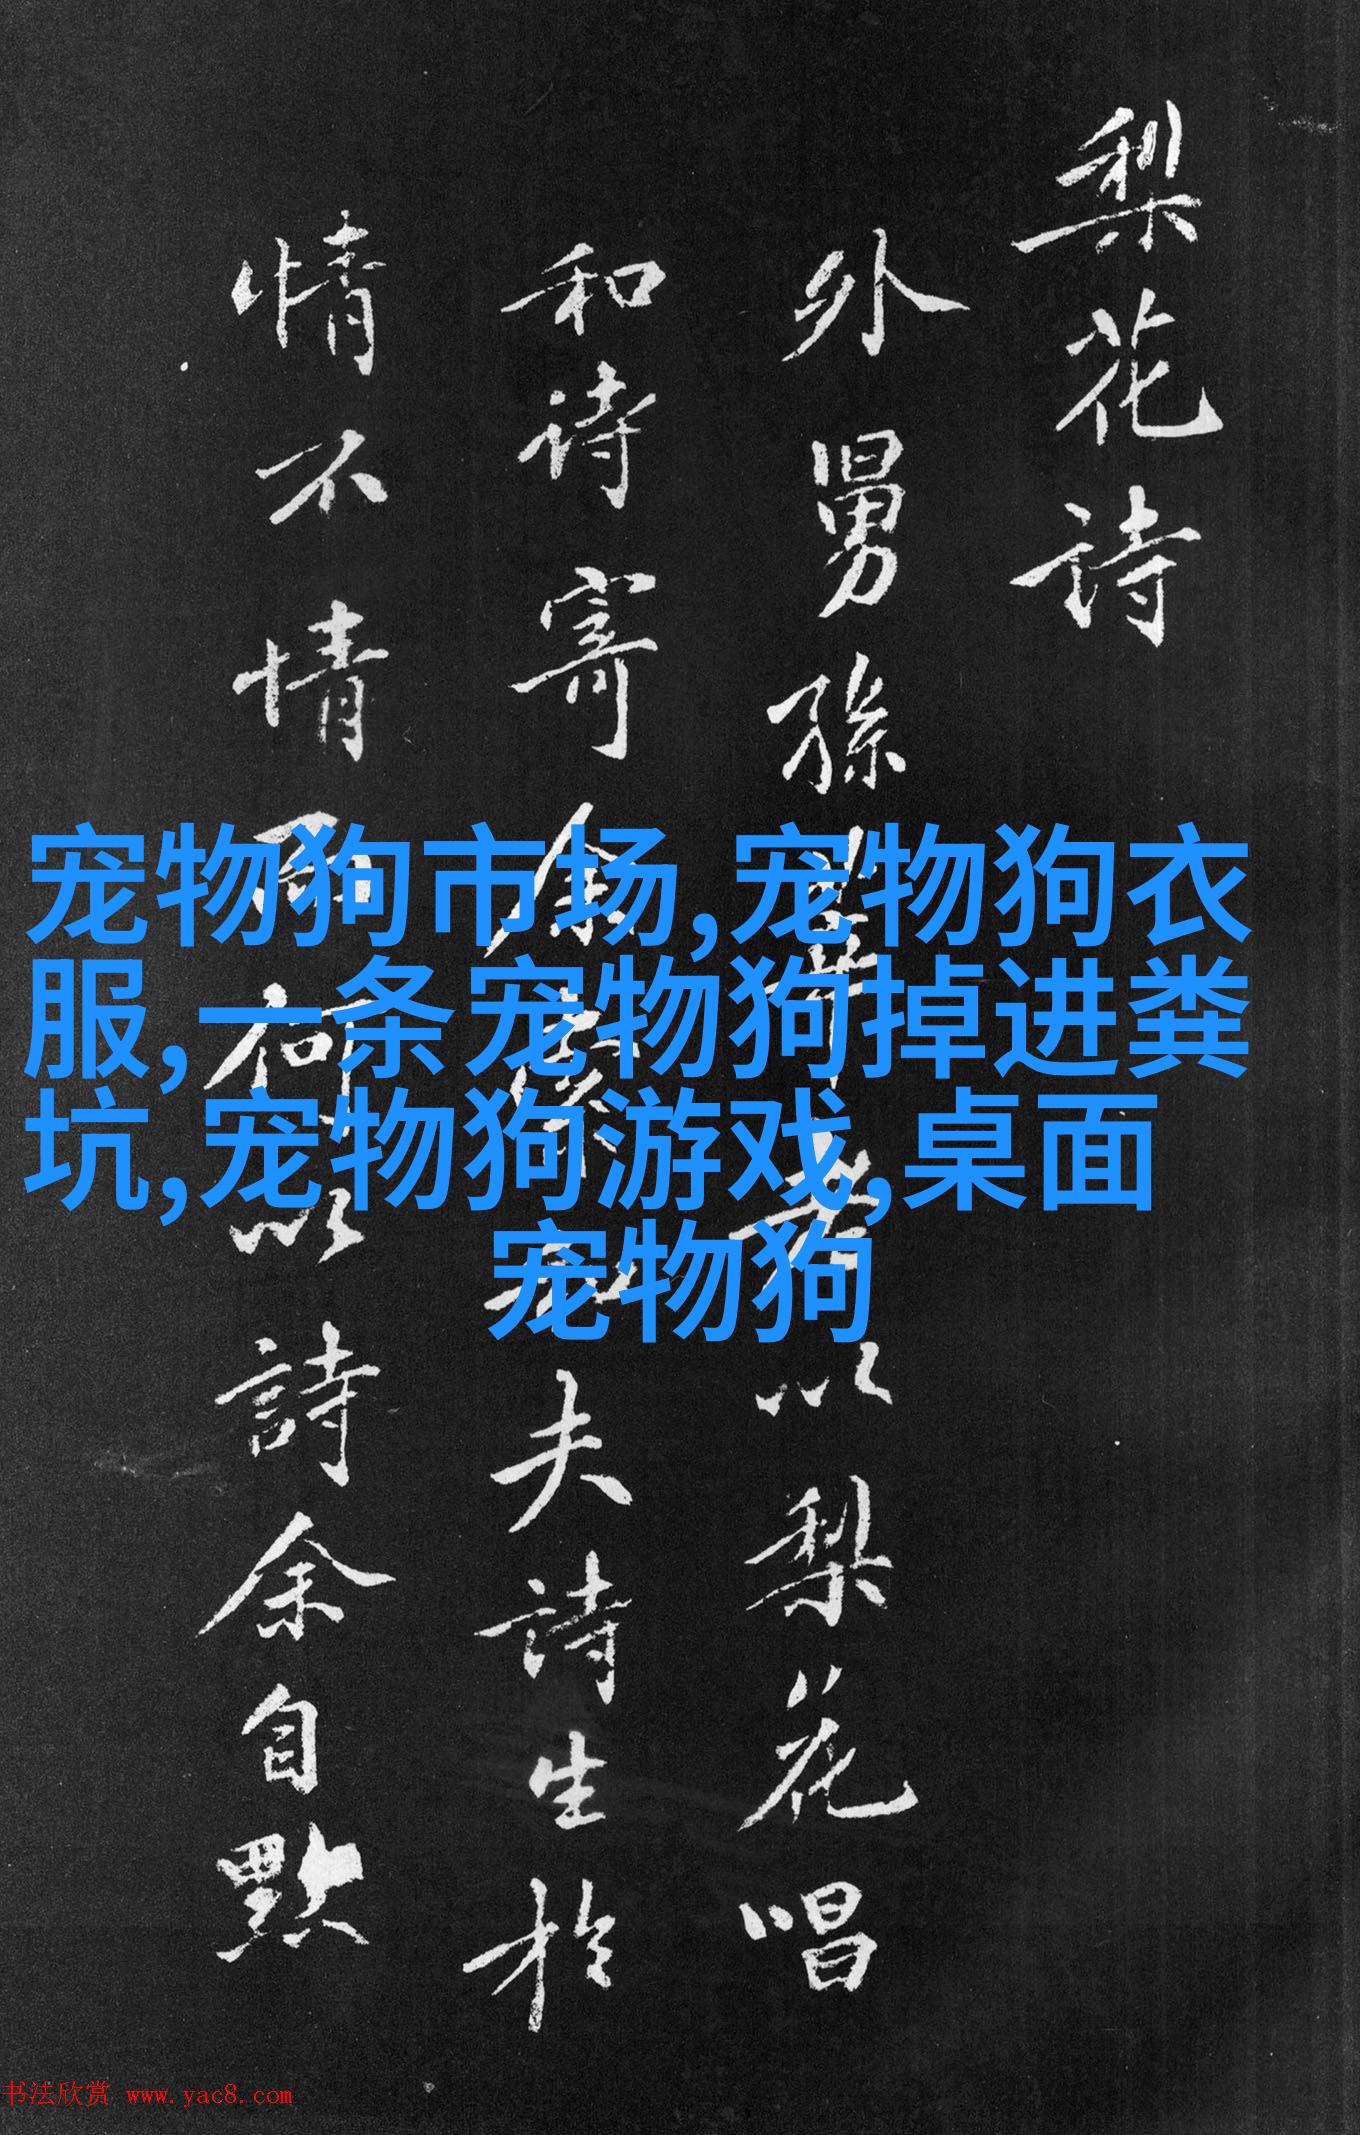 梨花詩
外舅孫莘老以梨花唱
和诗寄余、余夫詩生於
情不情而何以詩余自黙
宠物狗市场,宠物狗衣
服,一条宠物狗掉进粪
坑,宠物狗游戏,桌面
宠物狗
书法欣赏 www.yac8.com